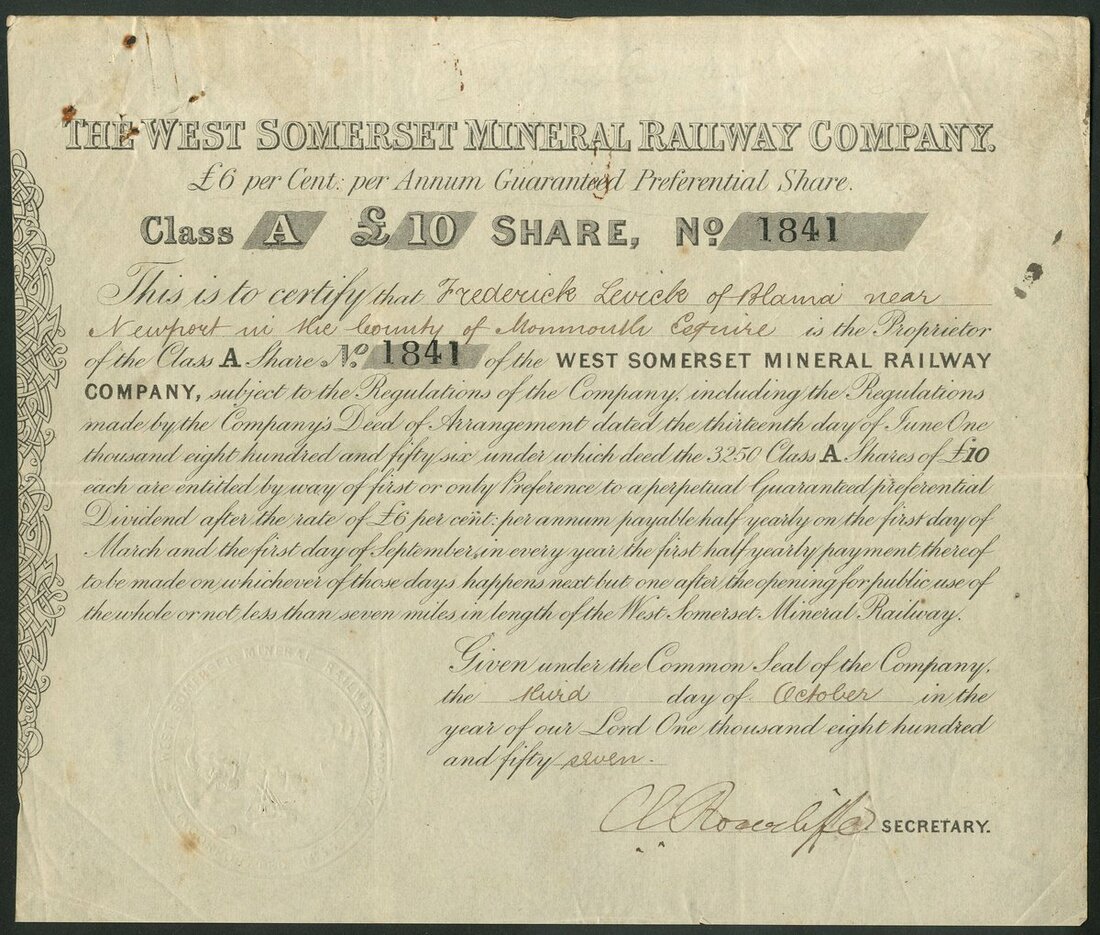 THE WEST SOMERSET MINERAL RAILWAY COMPANY.
£6 per Cent: per Annum Guaranteed Preferential Share.
Class A £10 SHARE, No. 1841
This is to certify that Frederick Levick of Blaina near
Newport in the County of Monmouth Esquire is the Proprietor
of the Class A Share No. 1841 of the WEST SOMERSET MINERAL RAILWAY
COMPANY, subject to the Regulations of the Company, including the Regulations
made by the Company's Deed of Arrangement dated the thirteenth day of June One
thousand eight hundred and fifty six under which deed the 3250 Class A Shares of £10
each are entitled by way of first or only Preference to a perpetual Guaranteed preferential
Dividend after the rate of £6 per cent: per annum payable half yearly on the first day of
March and the first day of September, in every year the first half yearly payment thereof
to be made on whichever of those days happens next but one after the opening for public use of
the whole or not less than seven miles in length of the West Somerset Mineral Railway.
Given under the Common Seal of the Company,
the third day of October in the
year of our Lord One thousand eight hundred
and fifty seven.
SECRETARY.
MINERAL RAILWAY